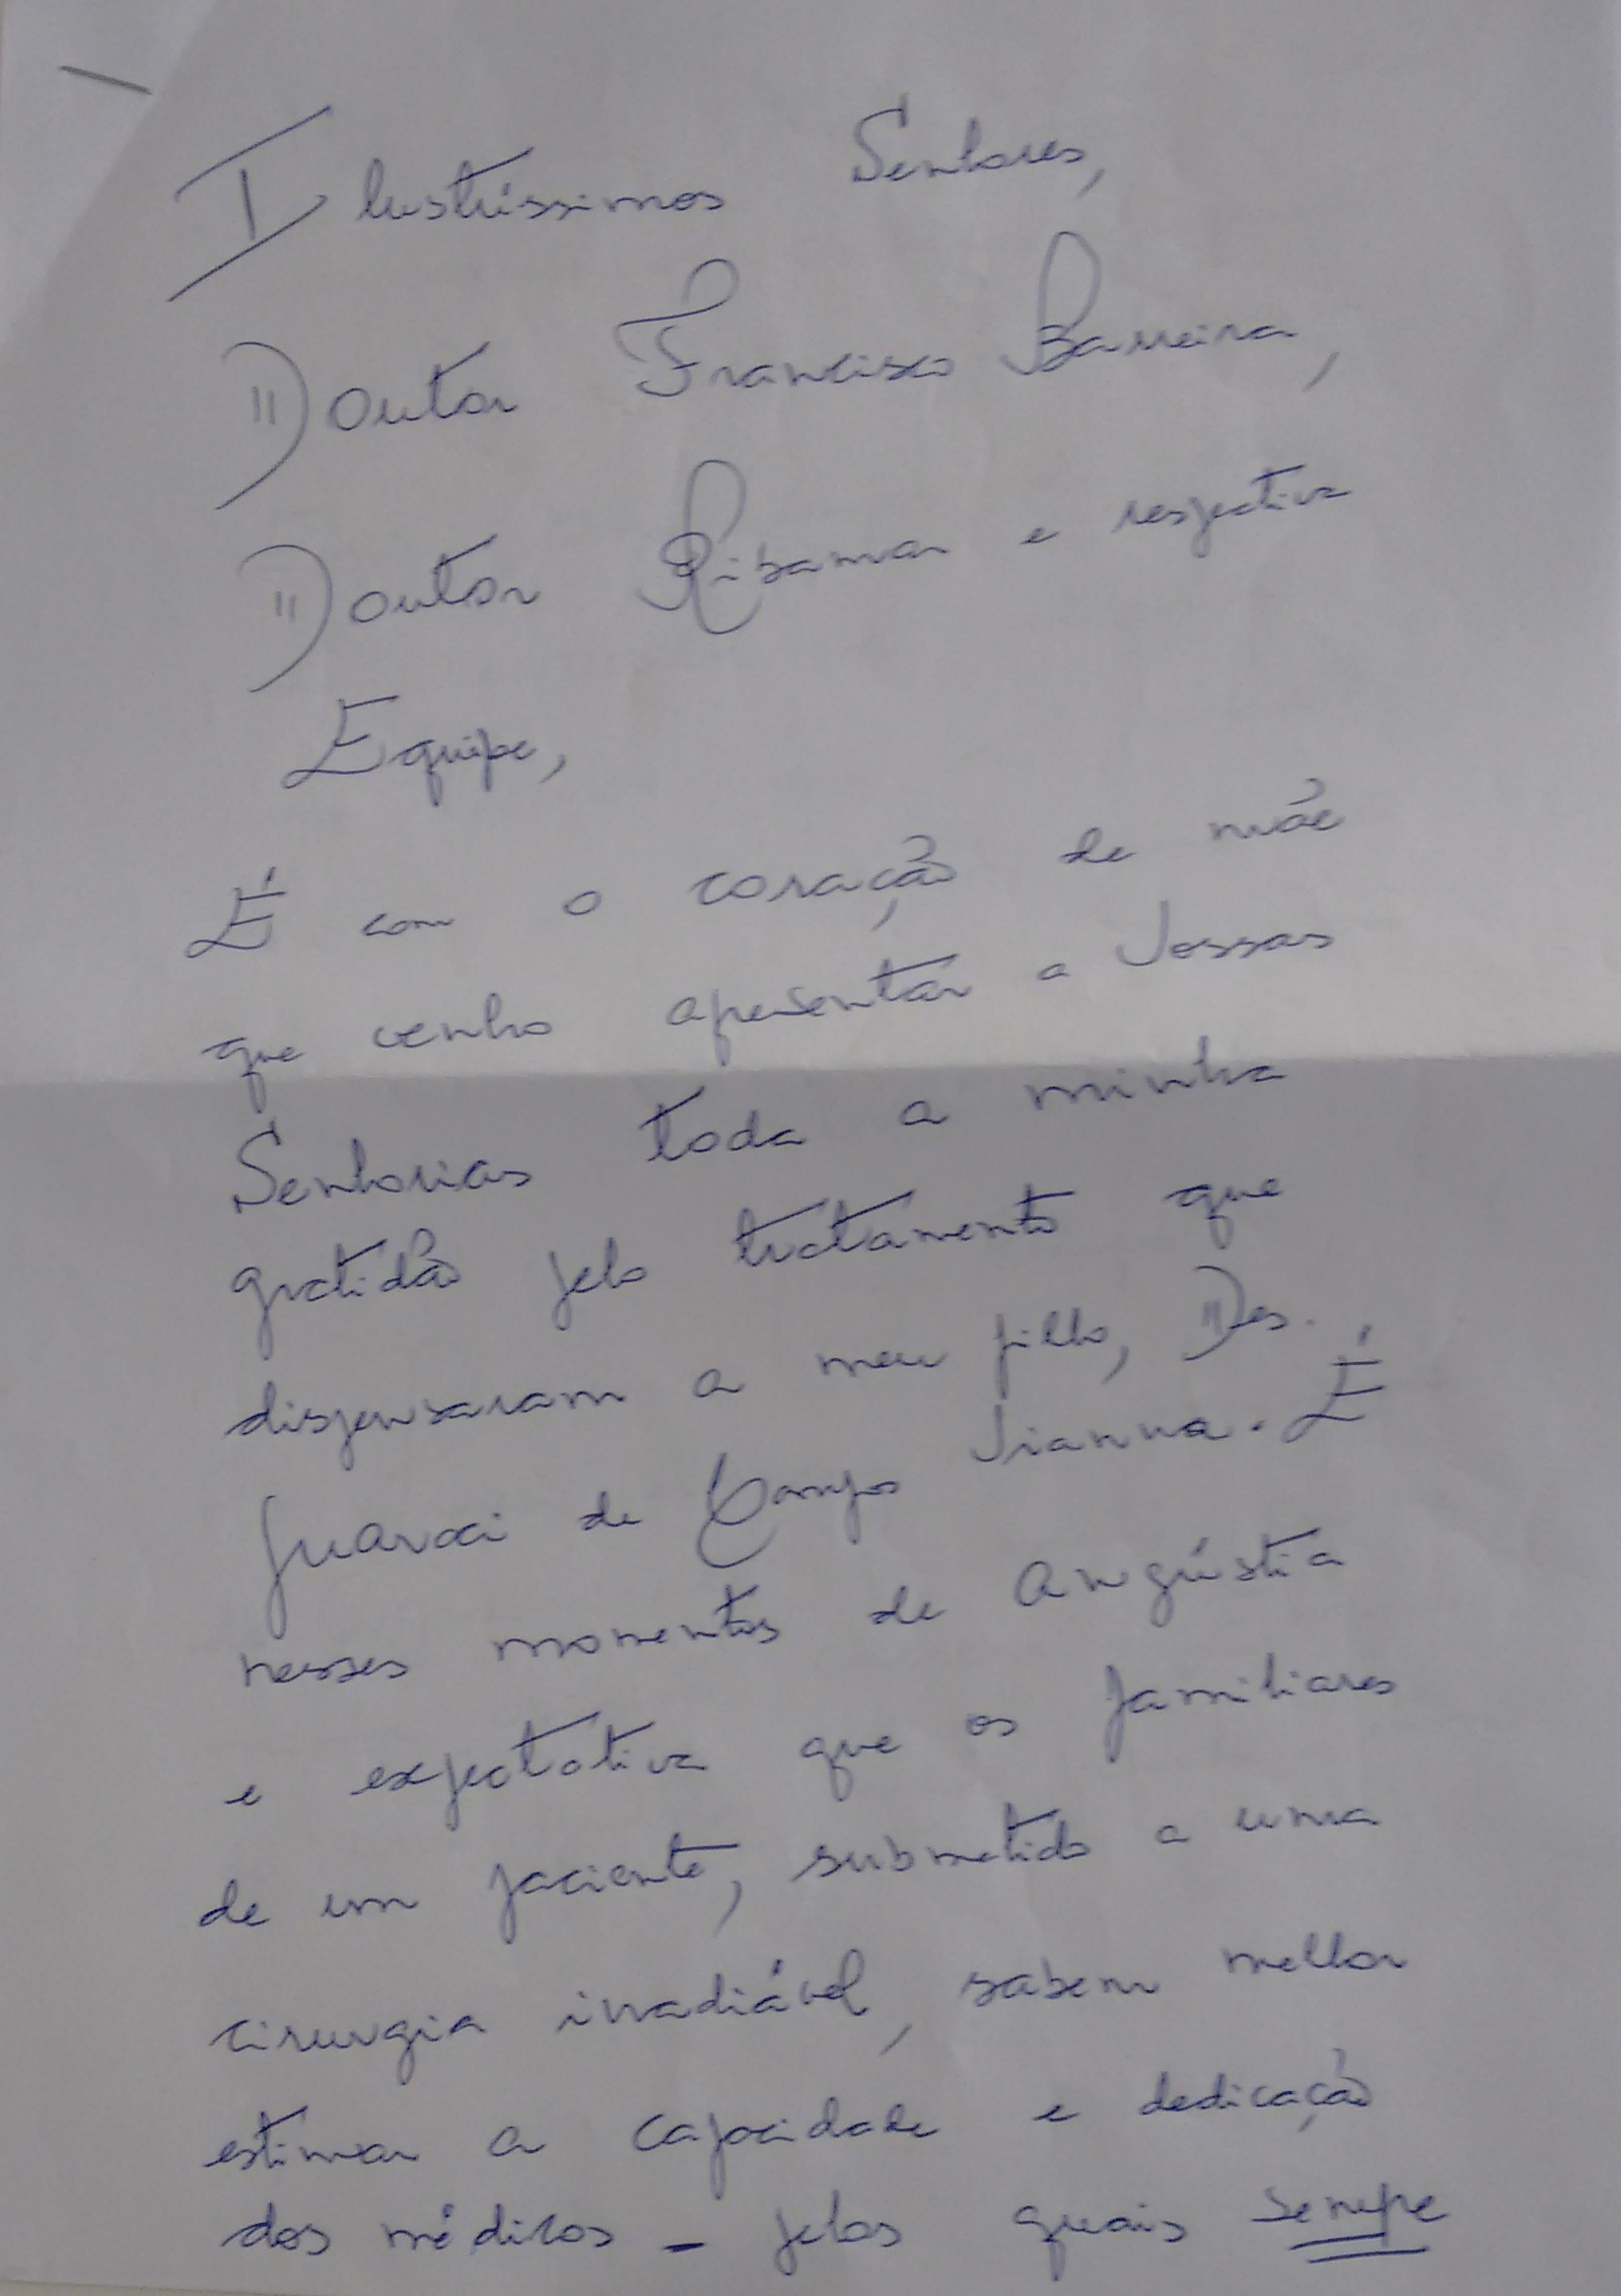 Ilustríssimos Senhores,
Doutor Francisco Barreira,
Doutor Ribamar e respectiva
Equipe,
É com o coração de mãe
que venho apresentar a Vossas
Senhorias toda a minha
gratidão pelo tratamento que
dispensaram a meu filho, Des.
Juaraci de Campos Vianna. É
nesses momentos de angústia
e expectativa que os familiares
de um paciente, submetido a uma
cirurgia inadiável, sabem melhor
estimar a capacidade e dedicação
dos médicos - pelos quais sempre